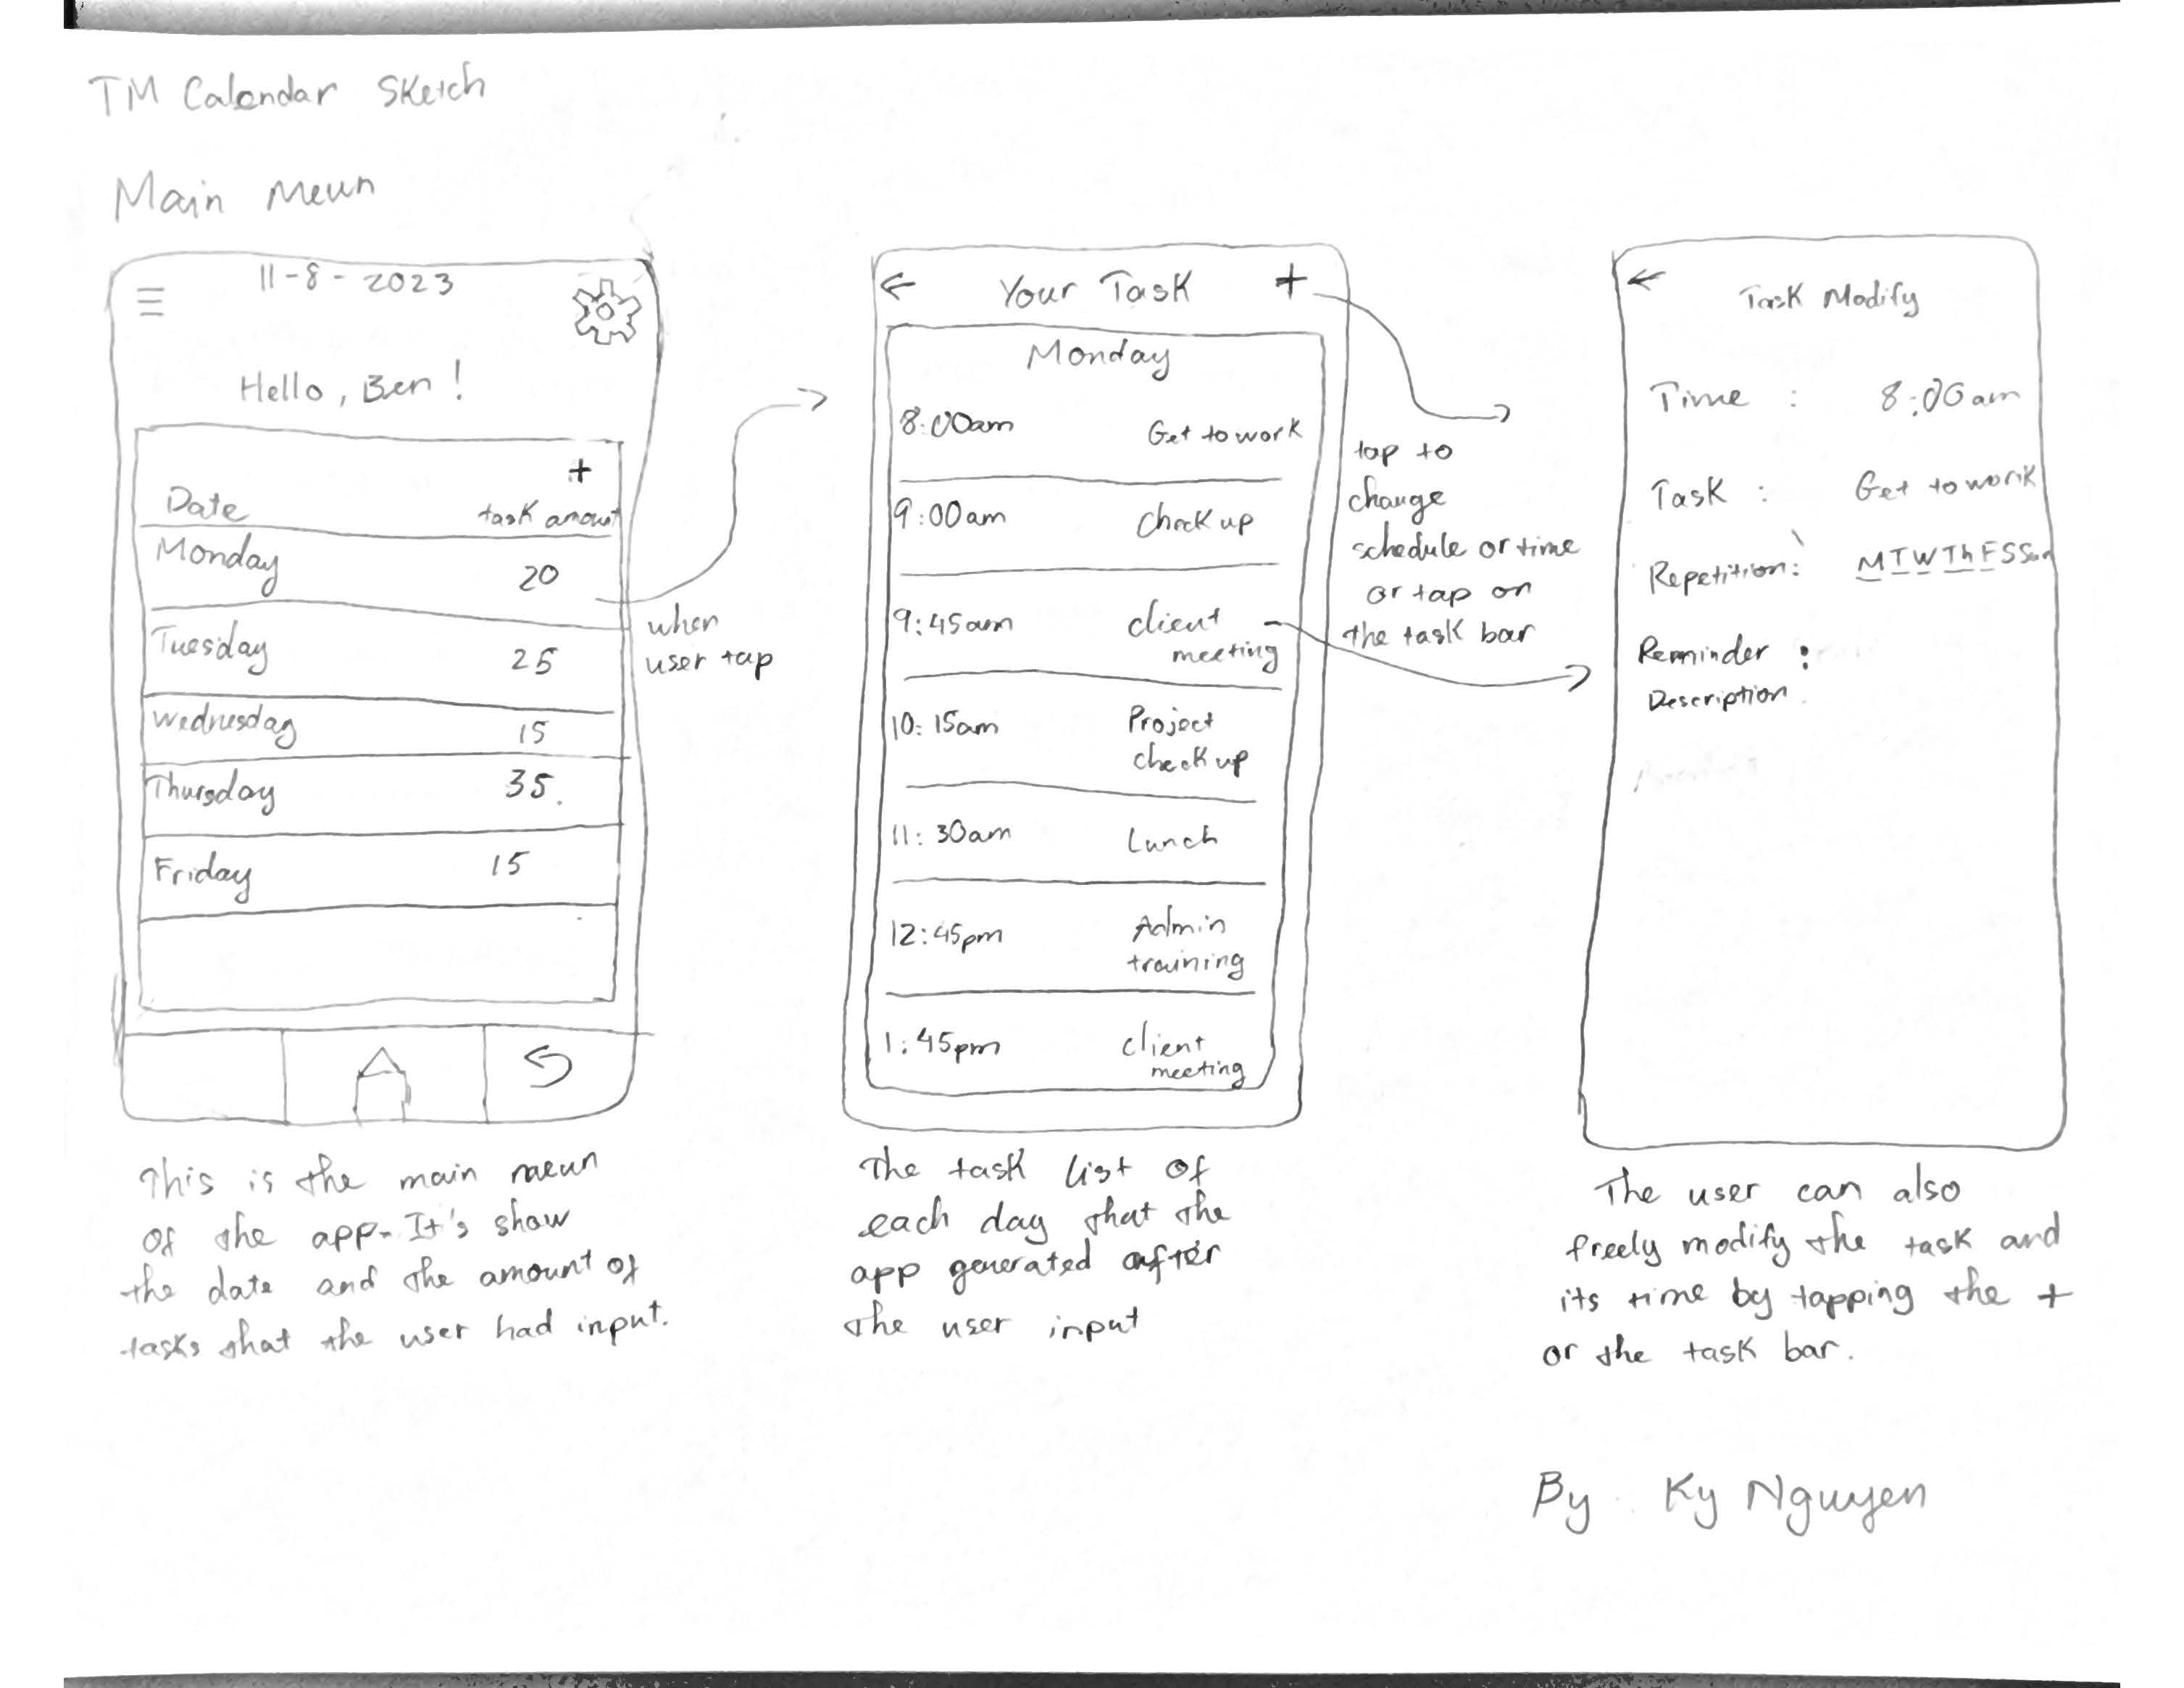 TM Calendar Sketch
Main Meun
11-8-2023
Hello, Ben!
+
Date task amount
Monday 20
Tuesday 25
Wednesday 15
Thursday 35.
Friday 15
when
user tap
This is the main meun
of the app. It's show
the date and the amount of
tasks that the user had input.
← Your Task +
Monday
8:00am Get to work
9:00am Check up
9:45am client
meeting
10:15am Project
check up
11:30am Lunch
12:45pm Admin
training
1:45pm client
meeting
tap to
change
schedule or time
or tap on
the task bar
The task list of
each day that the
app generated after
the user input
←
Task Modify
Time : 8:00am
Task : Get to work
Repetition: M T W Th F S Sun
Reminder :
Description
The user can also
freely modify the task and
its time by tapping the +
or the task bar.
By Ky Nguyen